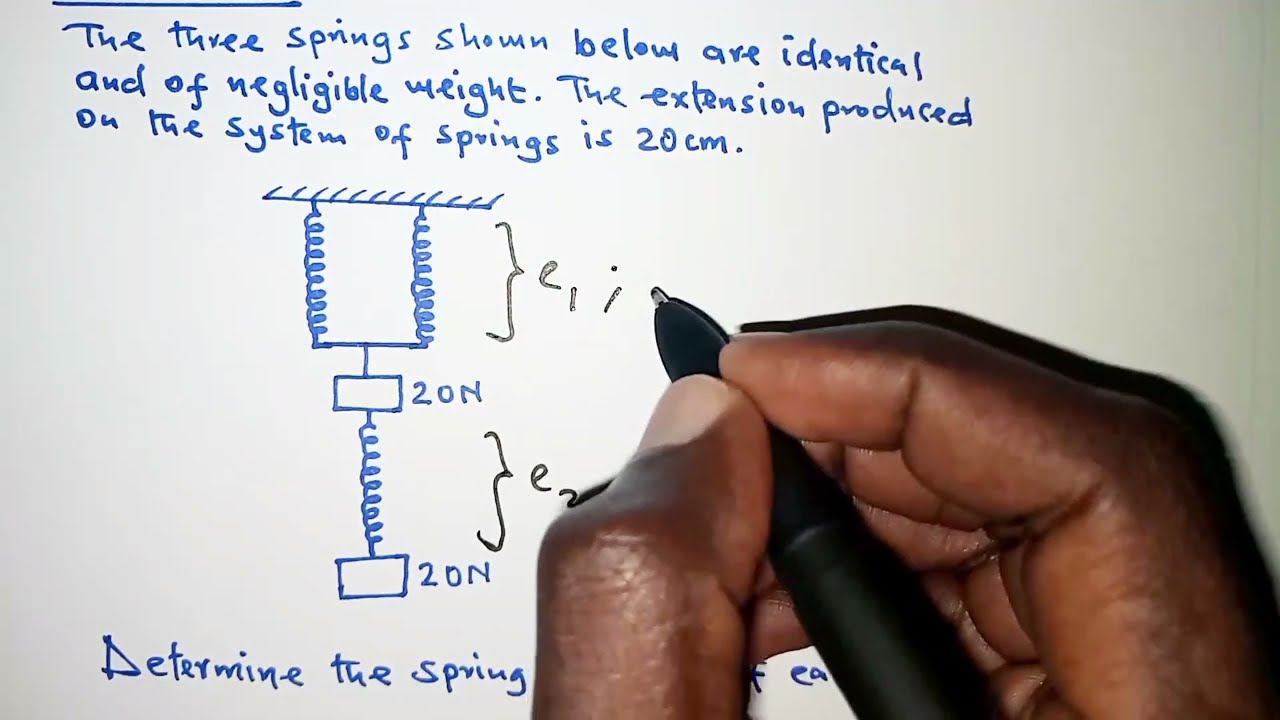 The three springs shown below are identical
and of negligible weight. The extension produced
on the system of springs is 20cm.
e₁ ;
20N
e₂
20N
Determine the spring